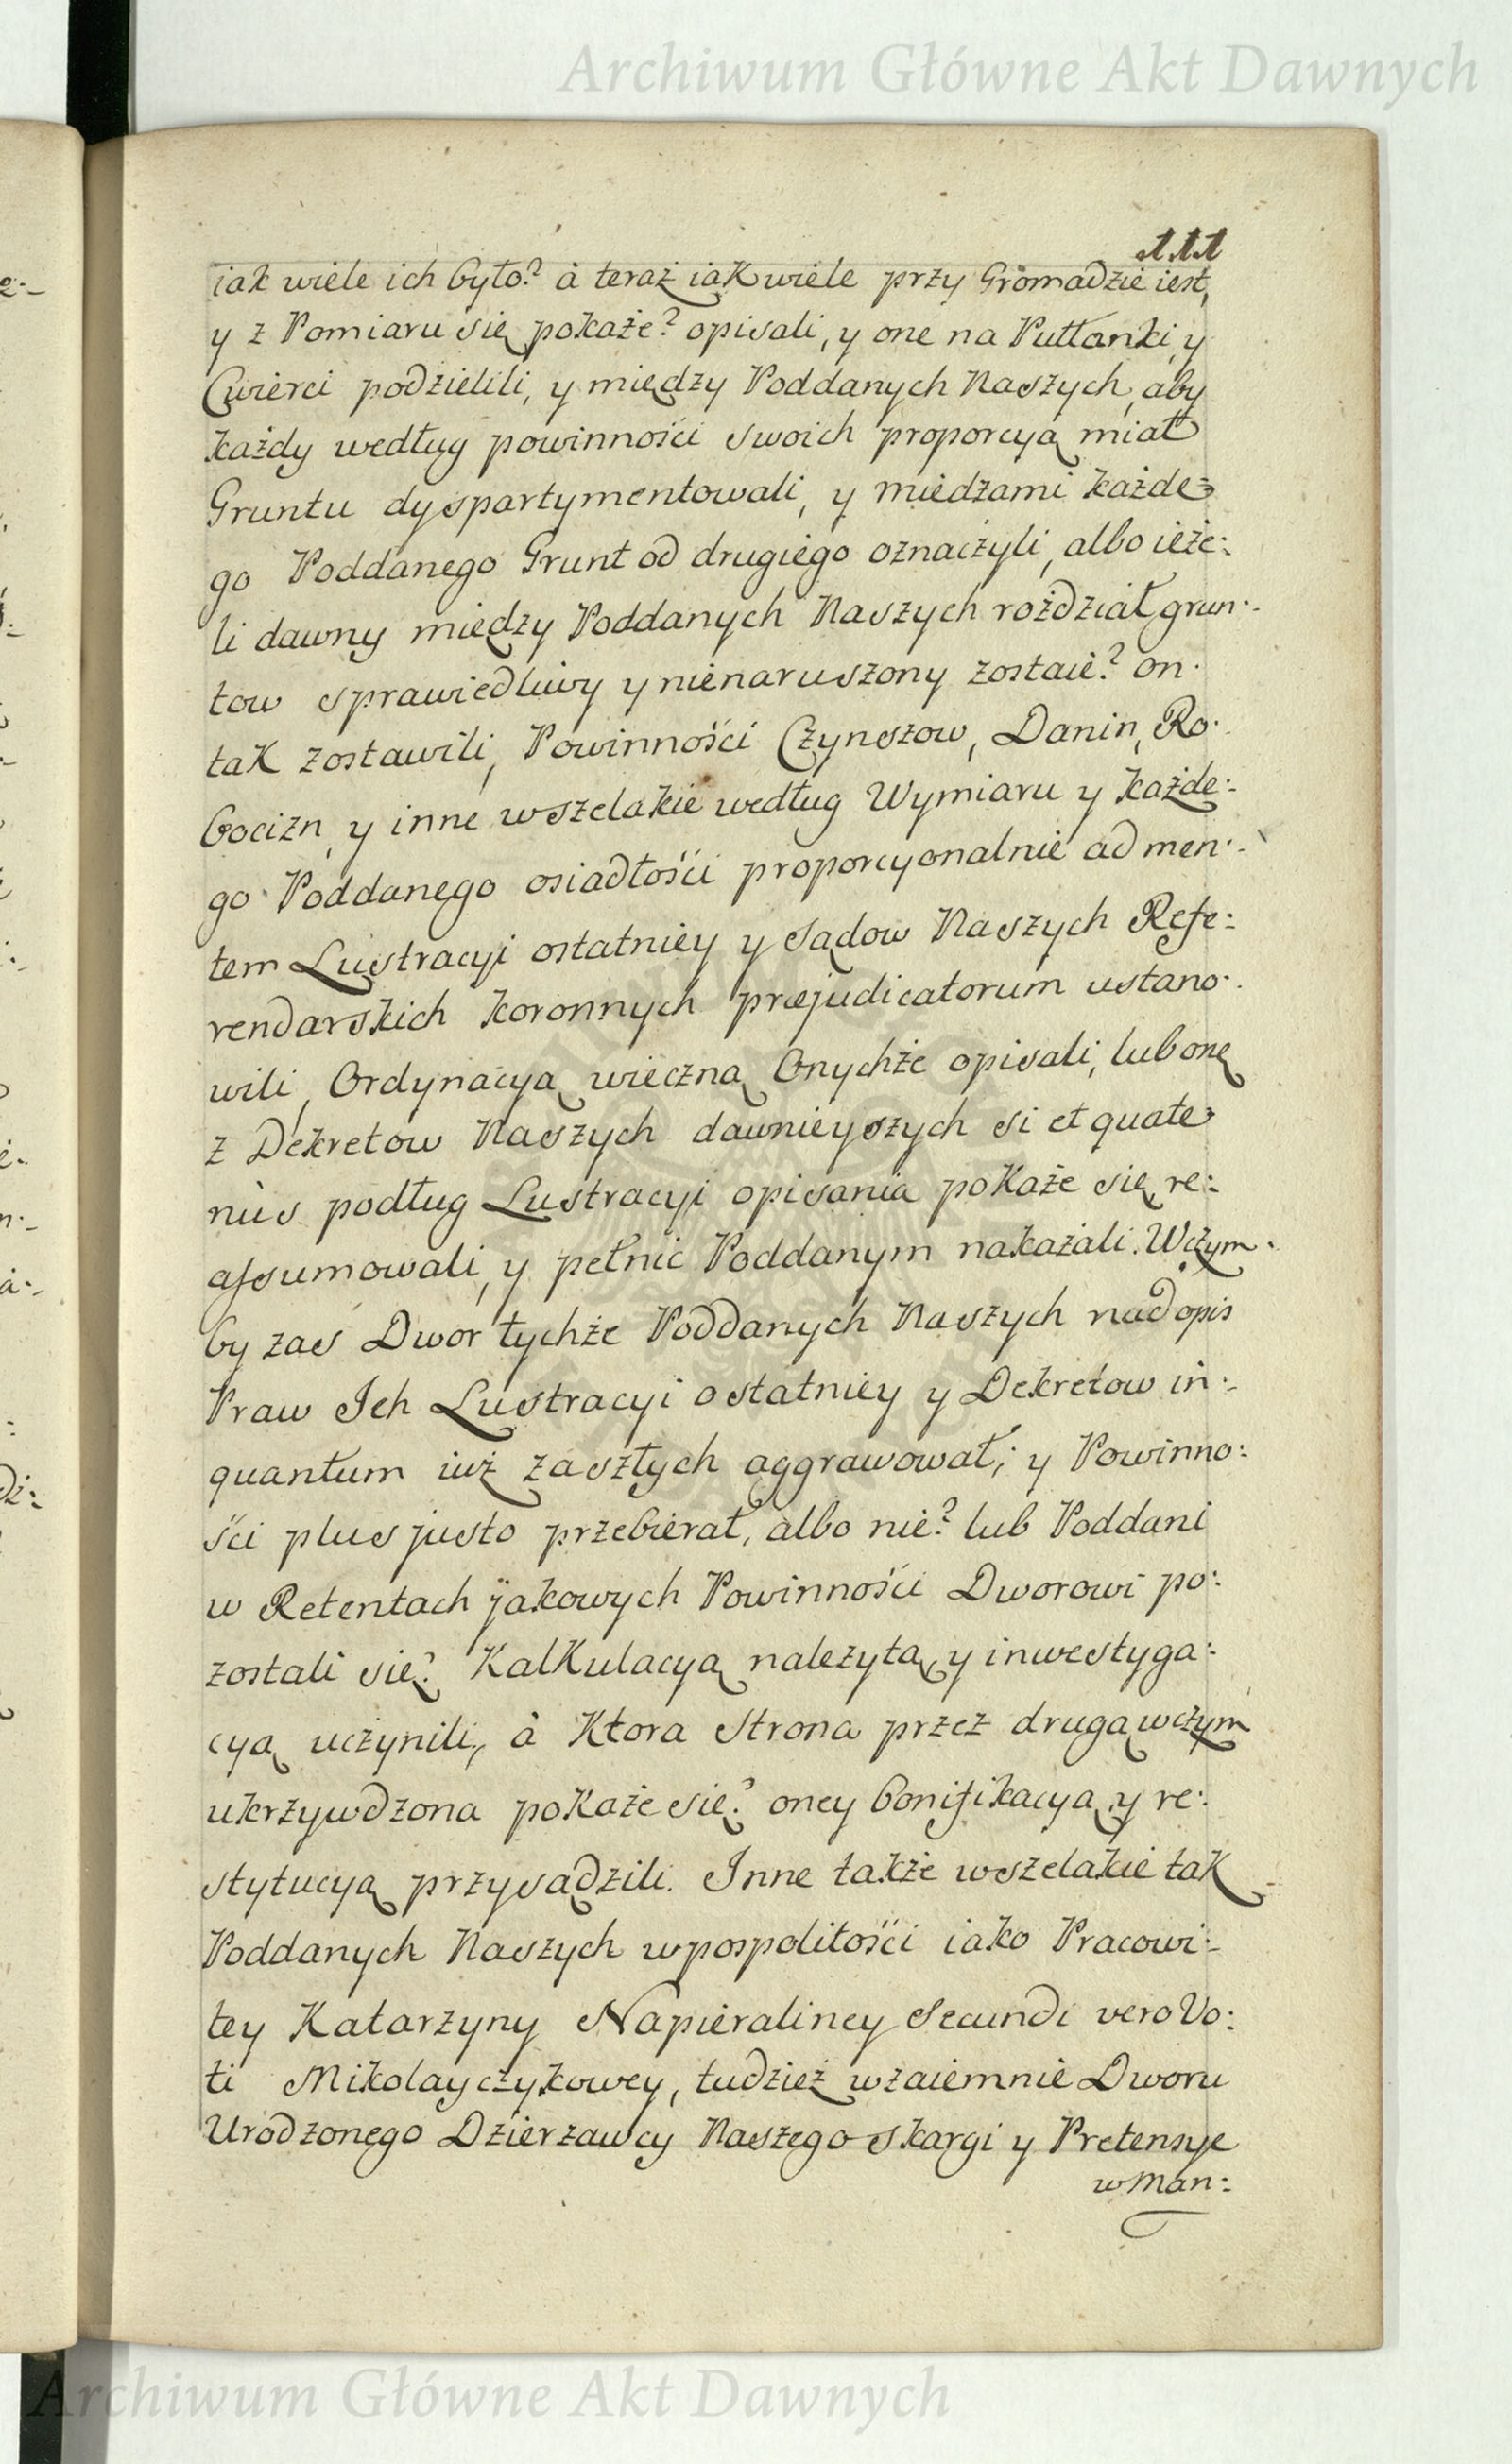 Archiwum Główne Akt Dawnych
111
iak wiele ich było? à teraz iak wiele przy Gromadzie iest,
y z Pomiaru się pokaże? opisali, y one na Pułłanki, y
Cwierci podzielili, y między Poddanych Naszych, aby
każdy według powinności swoich proporcyą miał
Gruntu dyspartymentowali, y miedzami każde:
go Poddanego Grunt od drugiego oznaczyli, albo ieże:
li dawny między Poddanych Naszych rozdział grun:
tow sprawiedliwy y nienaruszony zostaie? on
tak zostawili, Powinności Czynszow, Danin, Ro:
bocizn, y inne wszelakie według Wymiaru y każde:
go Poddanego osiadłości proporcyonalnie ad men:
tem Lustracyi ostatniey y Sądow Naszych Refe:
rendarskich koronnych præjudicatorum ustano:
wili, Ordynacyą wieczną Onychże opisali, lub onę
z Dekretow Naszych dawnieyszych si et quate
nùs podług Lustracyi opisania pokaże się re:
assumowali, y pełnic Poddanym nakazali. W czym
by zas Dwor tychże Poddanych Naszych nad opis
Praw Ich Lustracyi ostatniey y Dekretow in:
quantum iuż zaszłych aggrawował, y Powinno:
ści plus justo przebierał, albo nie? lub Poddani
w Retentach jakowych Powinności Dworowi po:
zostali się? Kalkulacyą należytą, y inwestyga:
cyą uczynili, à Ktora Strona przez drugą w czym
ukrzywdzona pokaże się? oney bonifikacyą y re:
stytucyą przysądzili. Inne także wszelakie tak
Poddanych Naszych w pospolitości iako Pracowi:
tey Katarzyny Napieraliney Secundi vero Vo:
ti Mikolayczykowey, tudzież wzaiemnie Dworu
Urodzonego Dzierzawcy Naszego skargi y Pretensye
w Man:
Archiwum Główne Akt Dawnych